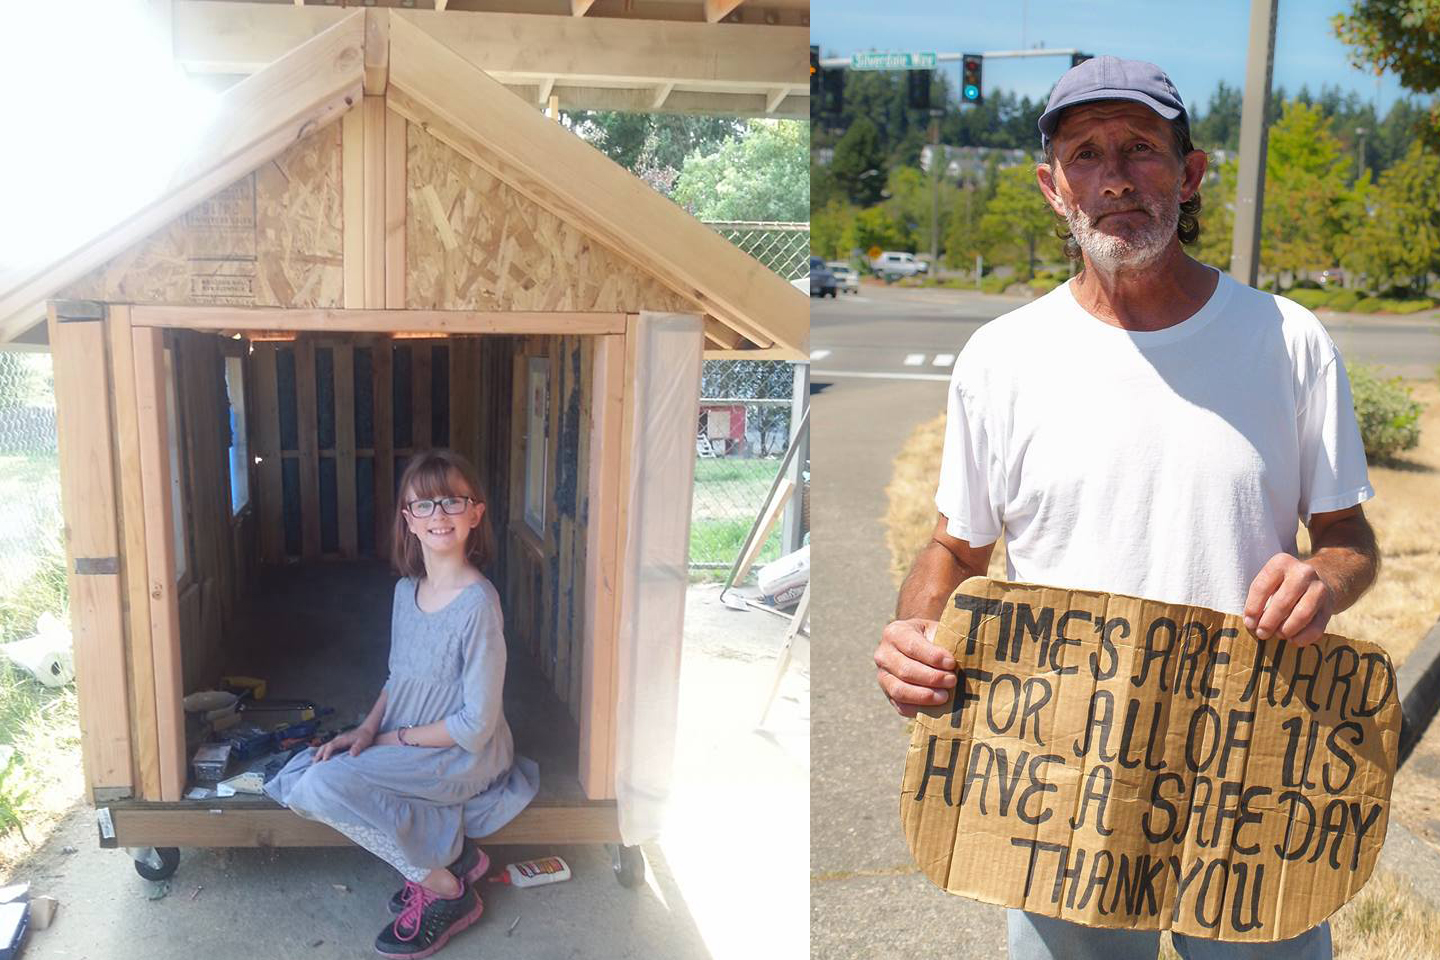 Silverdale Way
TIME'S ARE HARD
FOR ALL OF US
HAVE A SAFE DAY
THANK YOU